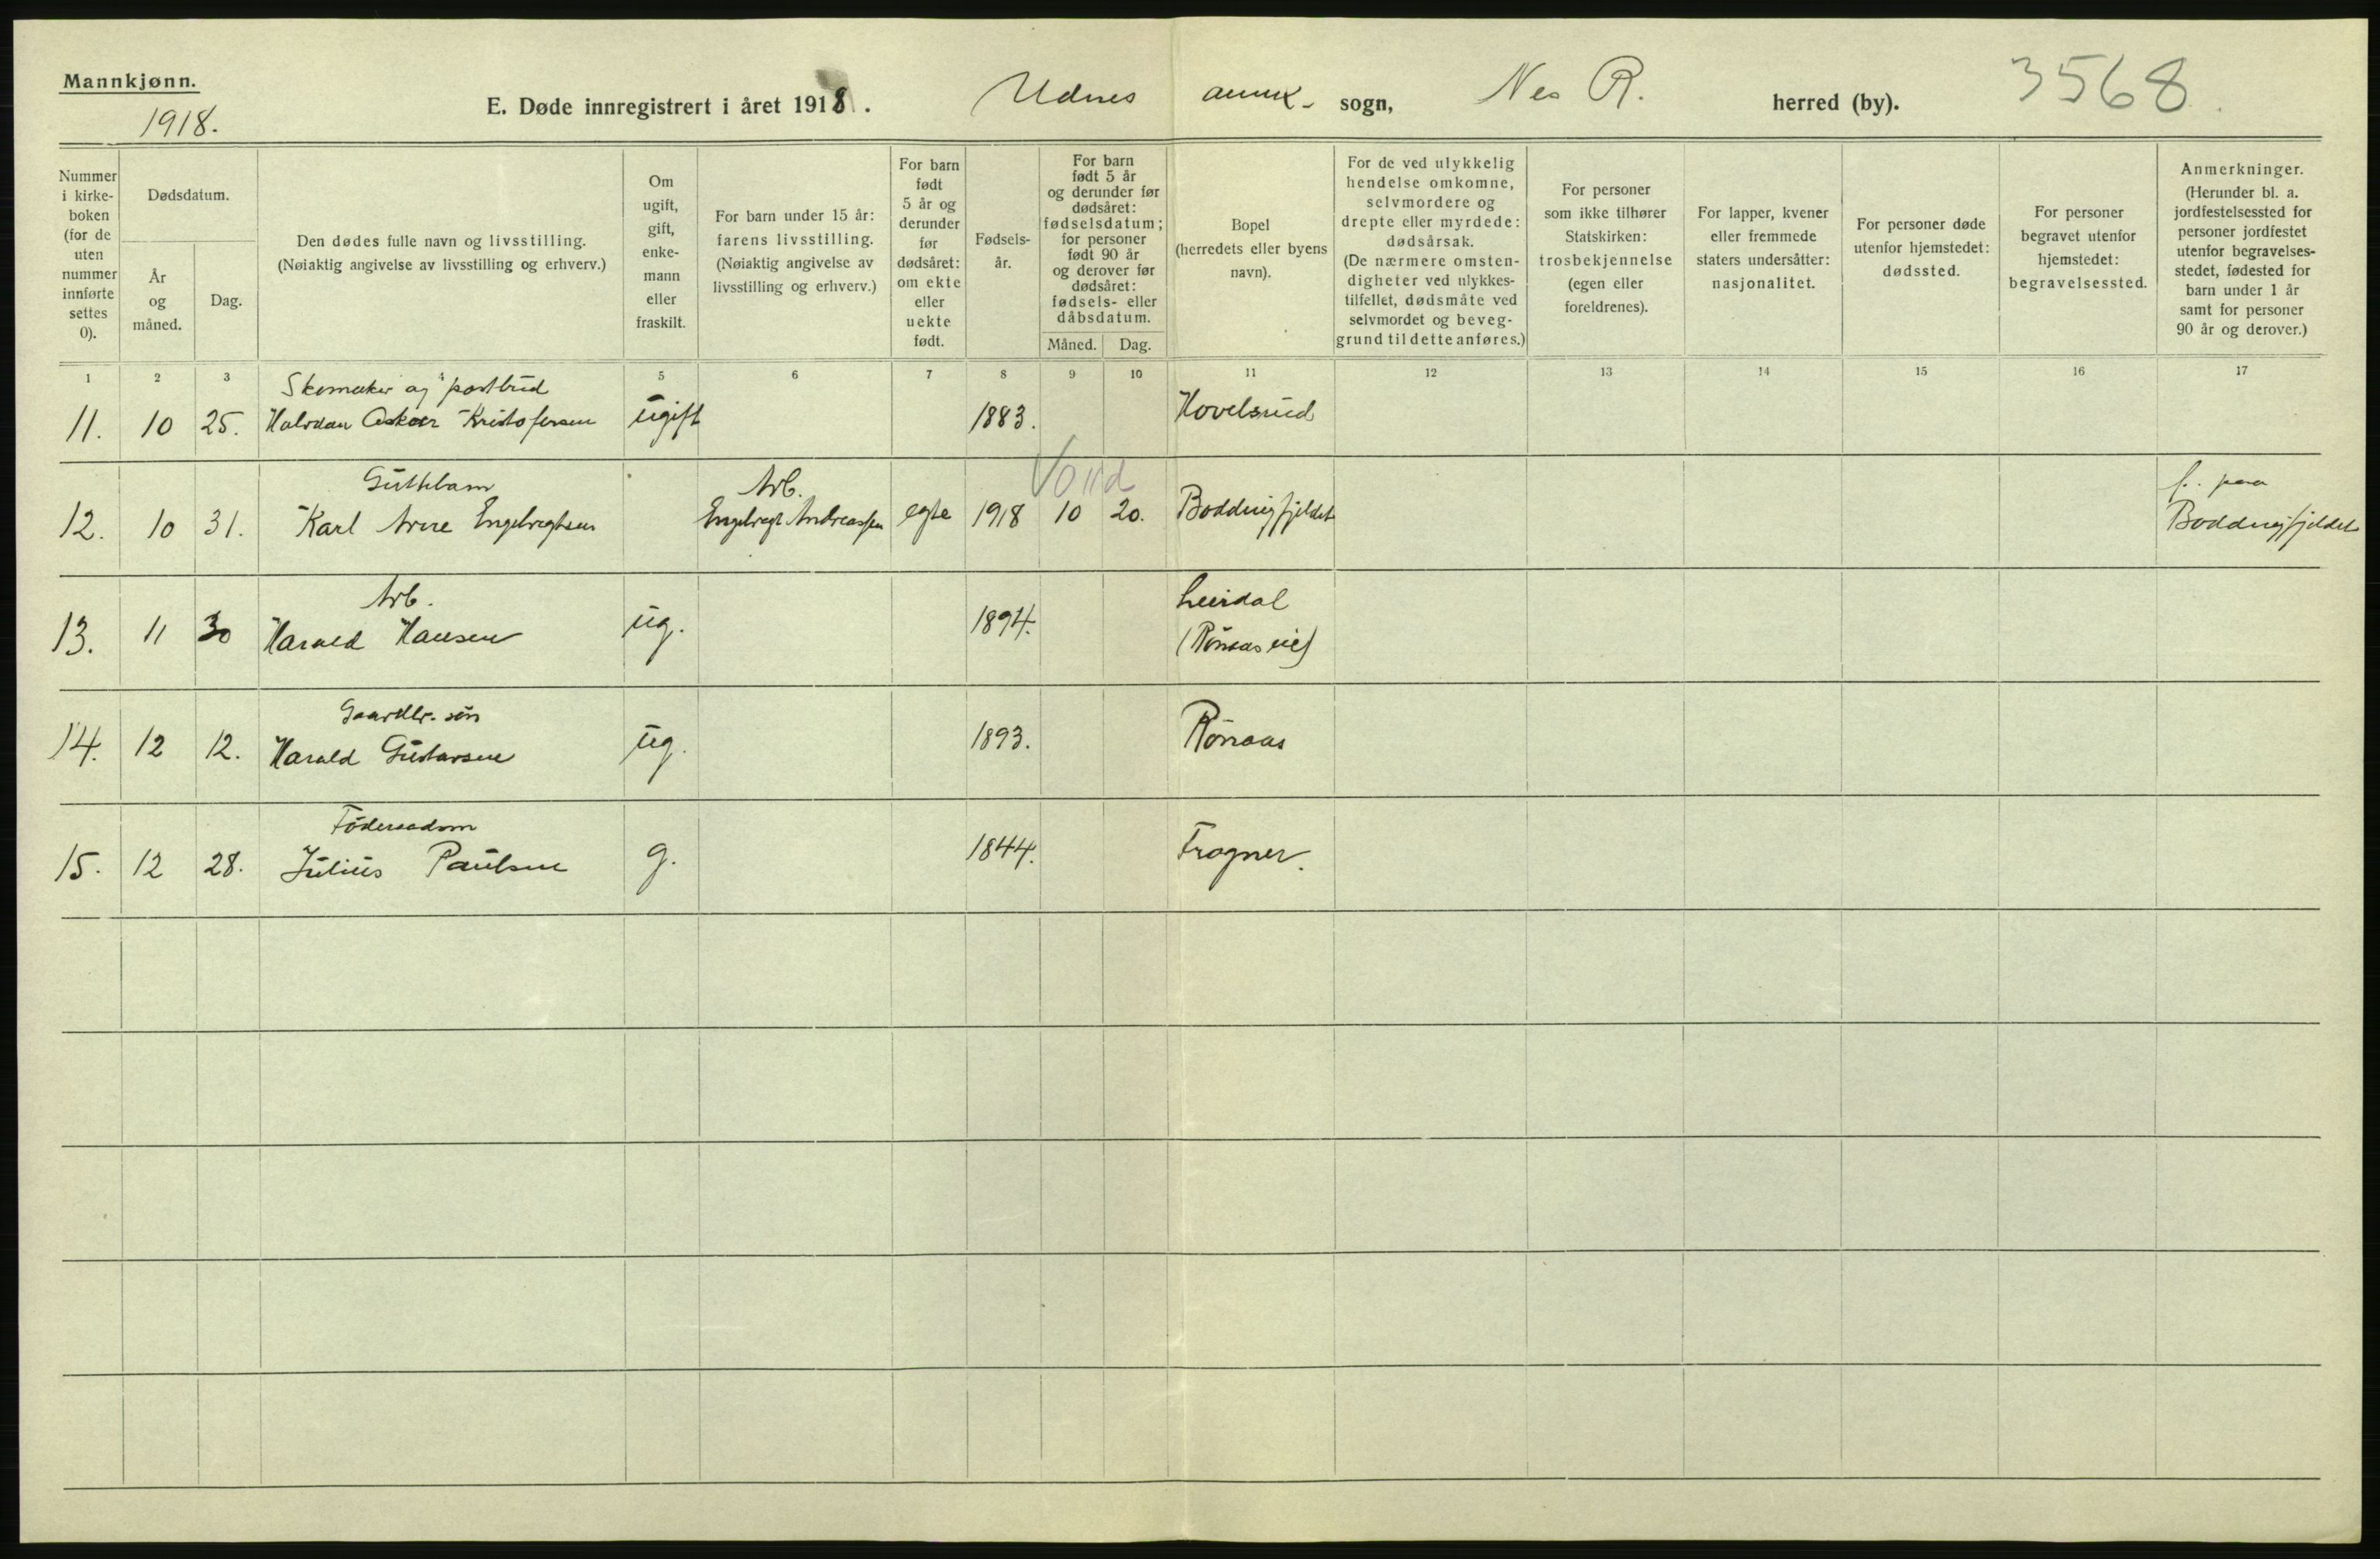 Mannkjønn.
1918.
E. Døde innregistrert i året 1918. Udnes annk- sogn, Nes R. herred (by). 3568
Nummer
i kirke-
boken
(for de
uten
nummer
innførte
settes
0).
Dødsdatum.
År
og
måned.
Dag.
Den dødes fulle navn og livsstilling.
(Nøiaktig angivelse av livsstilling og erhverv.)
Om
ugift,
gift,
enke-
mann
eller
fraskilt.
For barn under 15 år:
farens livsstilling.
(Nøiaktig angivelse av
livsstilling og erhverv.)
For barn
født
5 år og
derunder
før
dødsåret:
om ekte
eller
uekte
født.
Fødsels-
år.
For barn
født 5 år
og derunder før
dødsåret:
fødselsdatum;
for personer
født 90 år
og derover før
dødsåret:
fødsels- eller
dåbsdatum.
Måned. Dag.
Bopel
(herredets eller byens
navn).
For de ved ulykkelig
hendelse omkomne,
selvmordere og
drepte eller myrdede:
dødsårsak.
(De nærmere omsten-
digheter ved ulykkes-
tilfellet, dødsmåte ved
selvmordet og beveg-
grund til dette anføres.)
For personer
som ikke tilhører
Statskirken:
trosbekjennelse
(egen eller
foreldrenes).
For lapper, kvener
eller fremmede
staters undersåtter:
nasjonalitet.
For personer døde
utenfor hjemstedet:
dødssted.
For personer
begravet utenfor
hjemstedet:
begravelsessted.
Anmerkninger.
(Herunder bl. a.
jordfestelsessted for
personer jordfestet
utenfor begravelses-
stedet, fødested for
barn under 1 år
samt for personer
90 år og derover.)
1 2 3 4 5 6 7 8 9 10 11 12 13 14 15 16 17
Skomaker og postbud
11. 10 25. Halvdan Oskar Kristofersen ugift 1883. Hovelsrud
Guttebarn Arb. V 011d f. paa
12. 10 31. Karl Arne Engebregtsen Engebregt Andreassen egte 1918 10 20. Boddingfjeldet Boddingfjeldet
Arb. Leirdal
13. 11 30 Harald Hansen ug. 1894. (Rønaas eie)
Gaardbr. søn
14. 12 12. Harald Gustavsen ug. 1893. Rønaas
Föderaadsm
15. 12 28. Julius Paulsen g. 1844. Frogner.